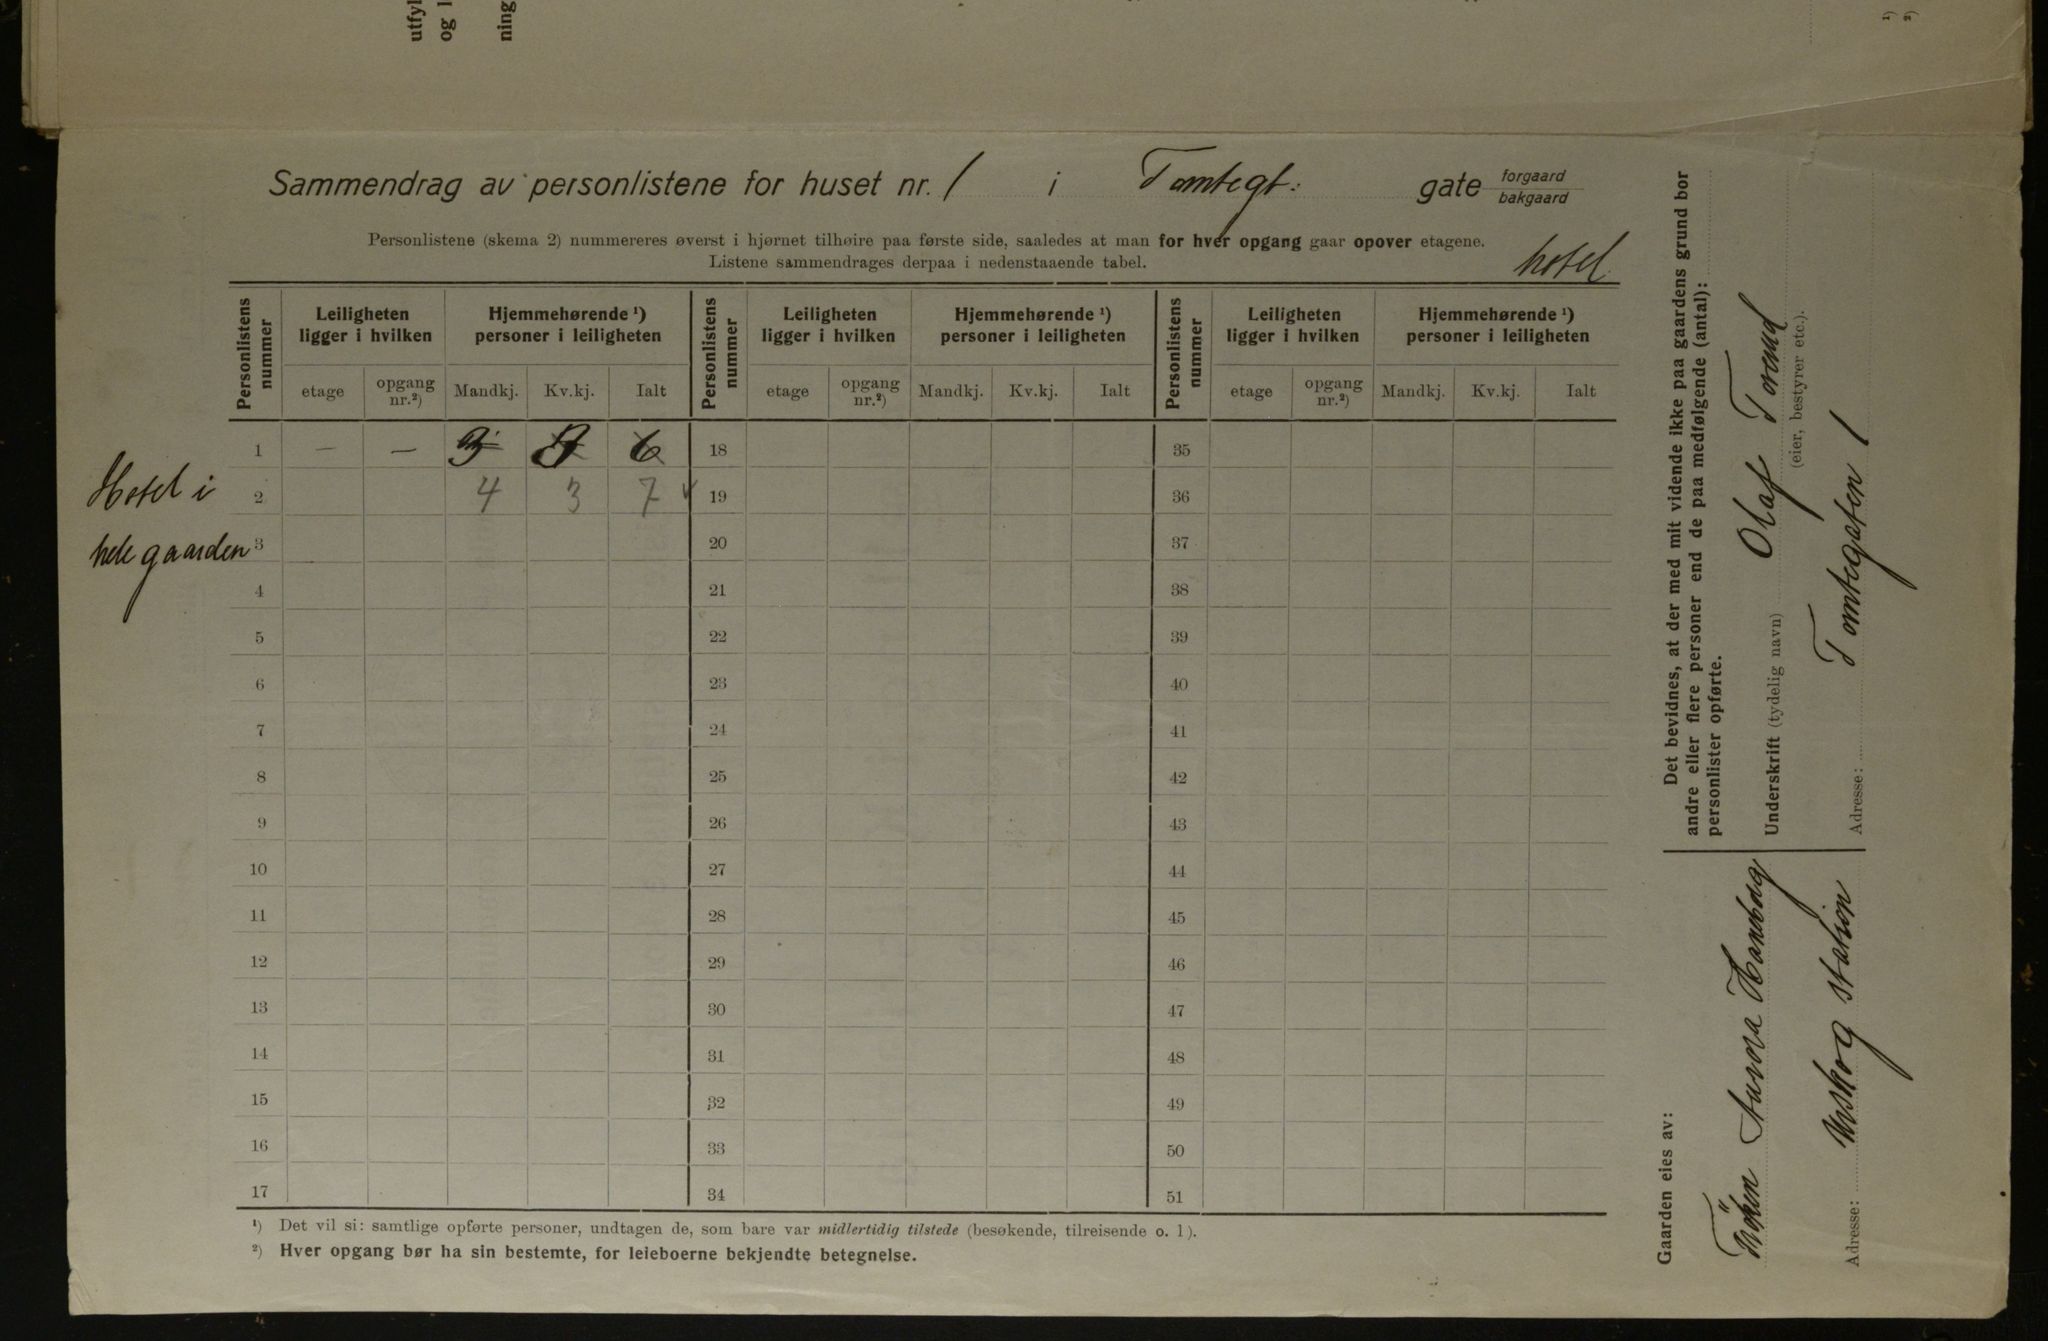 utfyl
og l
ning
¹)
²)
Sammendrag av personlistene for huset nr. 1 i Tomtegt. gate forgaard
bakgaard
Personlistene (skema 2) nummereres øverst i hjørnet tilhøire paa første side, saaledes at man for hver opgang gaar opover etagene.
Listene sammendrages derpaa i nedenstaaende tabel.
hotel
Personlistens nummer Leiligheten ligger i hvilken Hjemmehørende ¹) personer i leiligheten Personlistens nummer Leiligheten ligger i hvilken Hjemmehørende ¹) personer i leiligheten Personlistens nummer Leiligheten ligger i hvilken Hjemmehørende ¹) personer i leiligheten
etage opgang nr.²) Mandkj. Kv.kj. Ialt etage opgang nr.²) Mandkj. Kv.kj. Ialt etage opgang nr.²) Mandkj. Kv.kj. Ialt
1 — — 3 3 6 18 35
Hotel i
2 4 3 7 19 36
hele gaarden
3 20 37
4 21 38
5 22 39
6 23 40
7 24 41
8 25 42
9 26 43
10 27 44
11 28 45
12 29 46
13 30 47
14 31 48
15 32 49
16 33 50
17 34 51
¹) Det vil si: samtlige opførte personer, undtagen de, som bare var midlertidig tilstede (besøkende, tilreisende o. l).
²) Hver opgang bør ha sin bestemte, for leieboerne bekjendte betegnelse.
Det bevidnes, at der med mit vidende ikke paa gaardens grund bor
andre eller flere personer end de paa medfølgende (antal):
personlister opførte.
Underskrift (tydelig navn) Olaf Torud
(eier, bestyrer etc.).
Adresse: Tomtegaten 1
Gaarden eies av:
Frøken Aurora Hanebog
Adresse: Urskog station